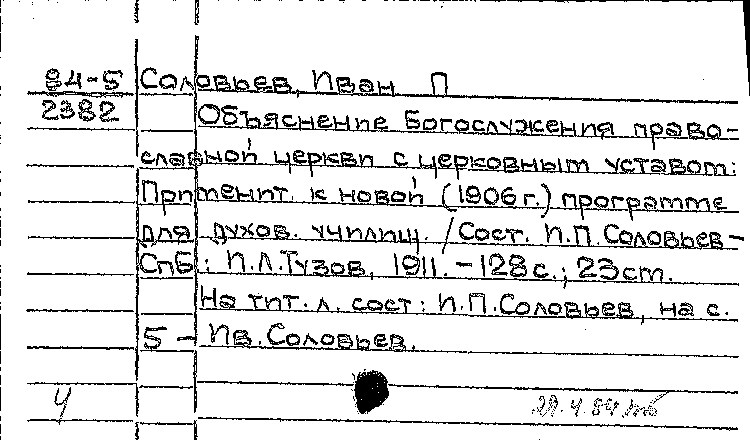 84-5 Соловьев, Иван П
2382 Объяснение Богослужения право-
славной церкви с церковным уставом:
Применит. к новой (1906 г.) программе
для духов. училищ. / Сост. И.П. Соловьев –
Спб : И.Л.Тузов, 1911. – 128 с.; 23 см.
На тит. л. сост : И.П. Соловьев, на с.
5 – Ив. Соловьев.
Ч